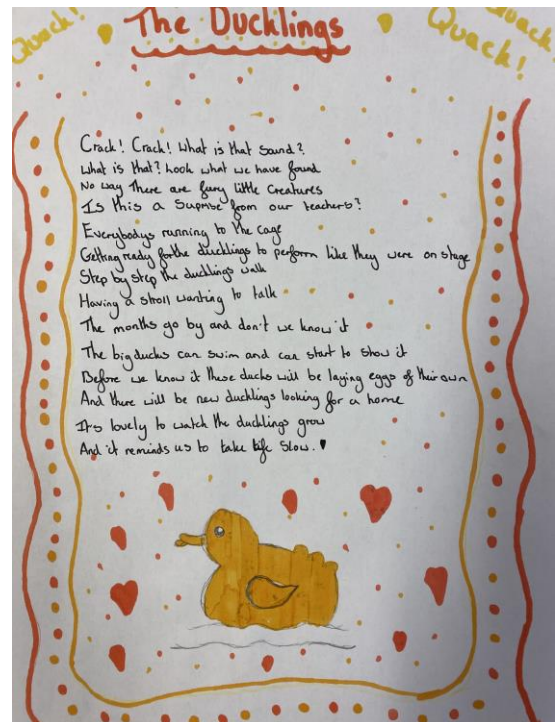 Quack!
The Ducklings
Quack!
Quack!
Crack! Crack! What is that sound?
What is that? Look what we have found
No way There are fury little creatures
Is this a Suprise from our teachers?
Everybodys running to the cage
Getting ready for the ducklings to perform like they were on stage
Step by step the ducklings walk
Having a stroll wanting to talk
The months go by and don't we know it
The big ducks can swim and can start to show it
Before we know it these ducks will be laying eggs of their own
And there will be new ducklings looking for a home
It's lovely to watch the ducklings grow
And it reminds us to take life slow.